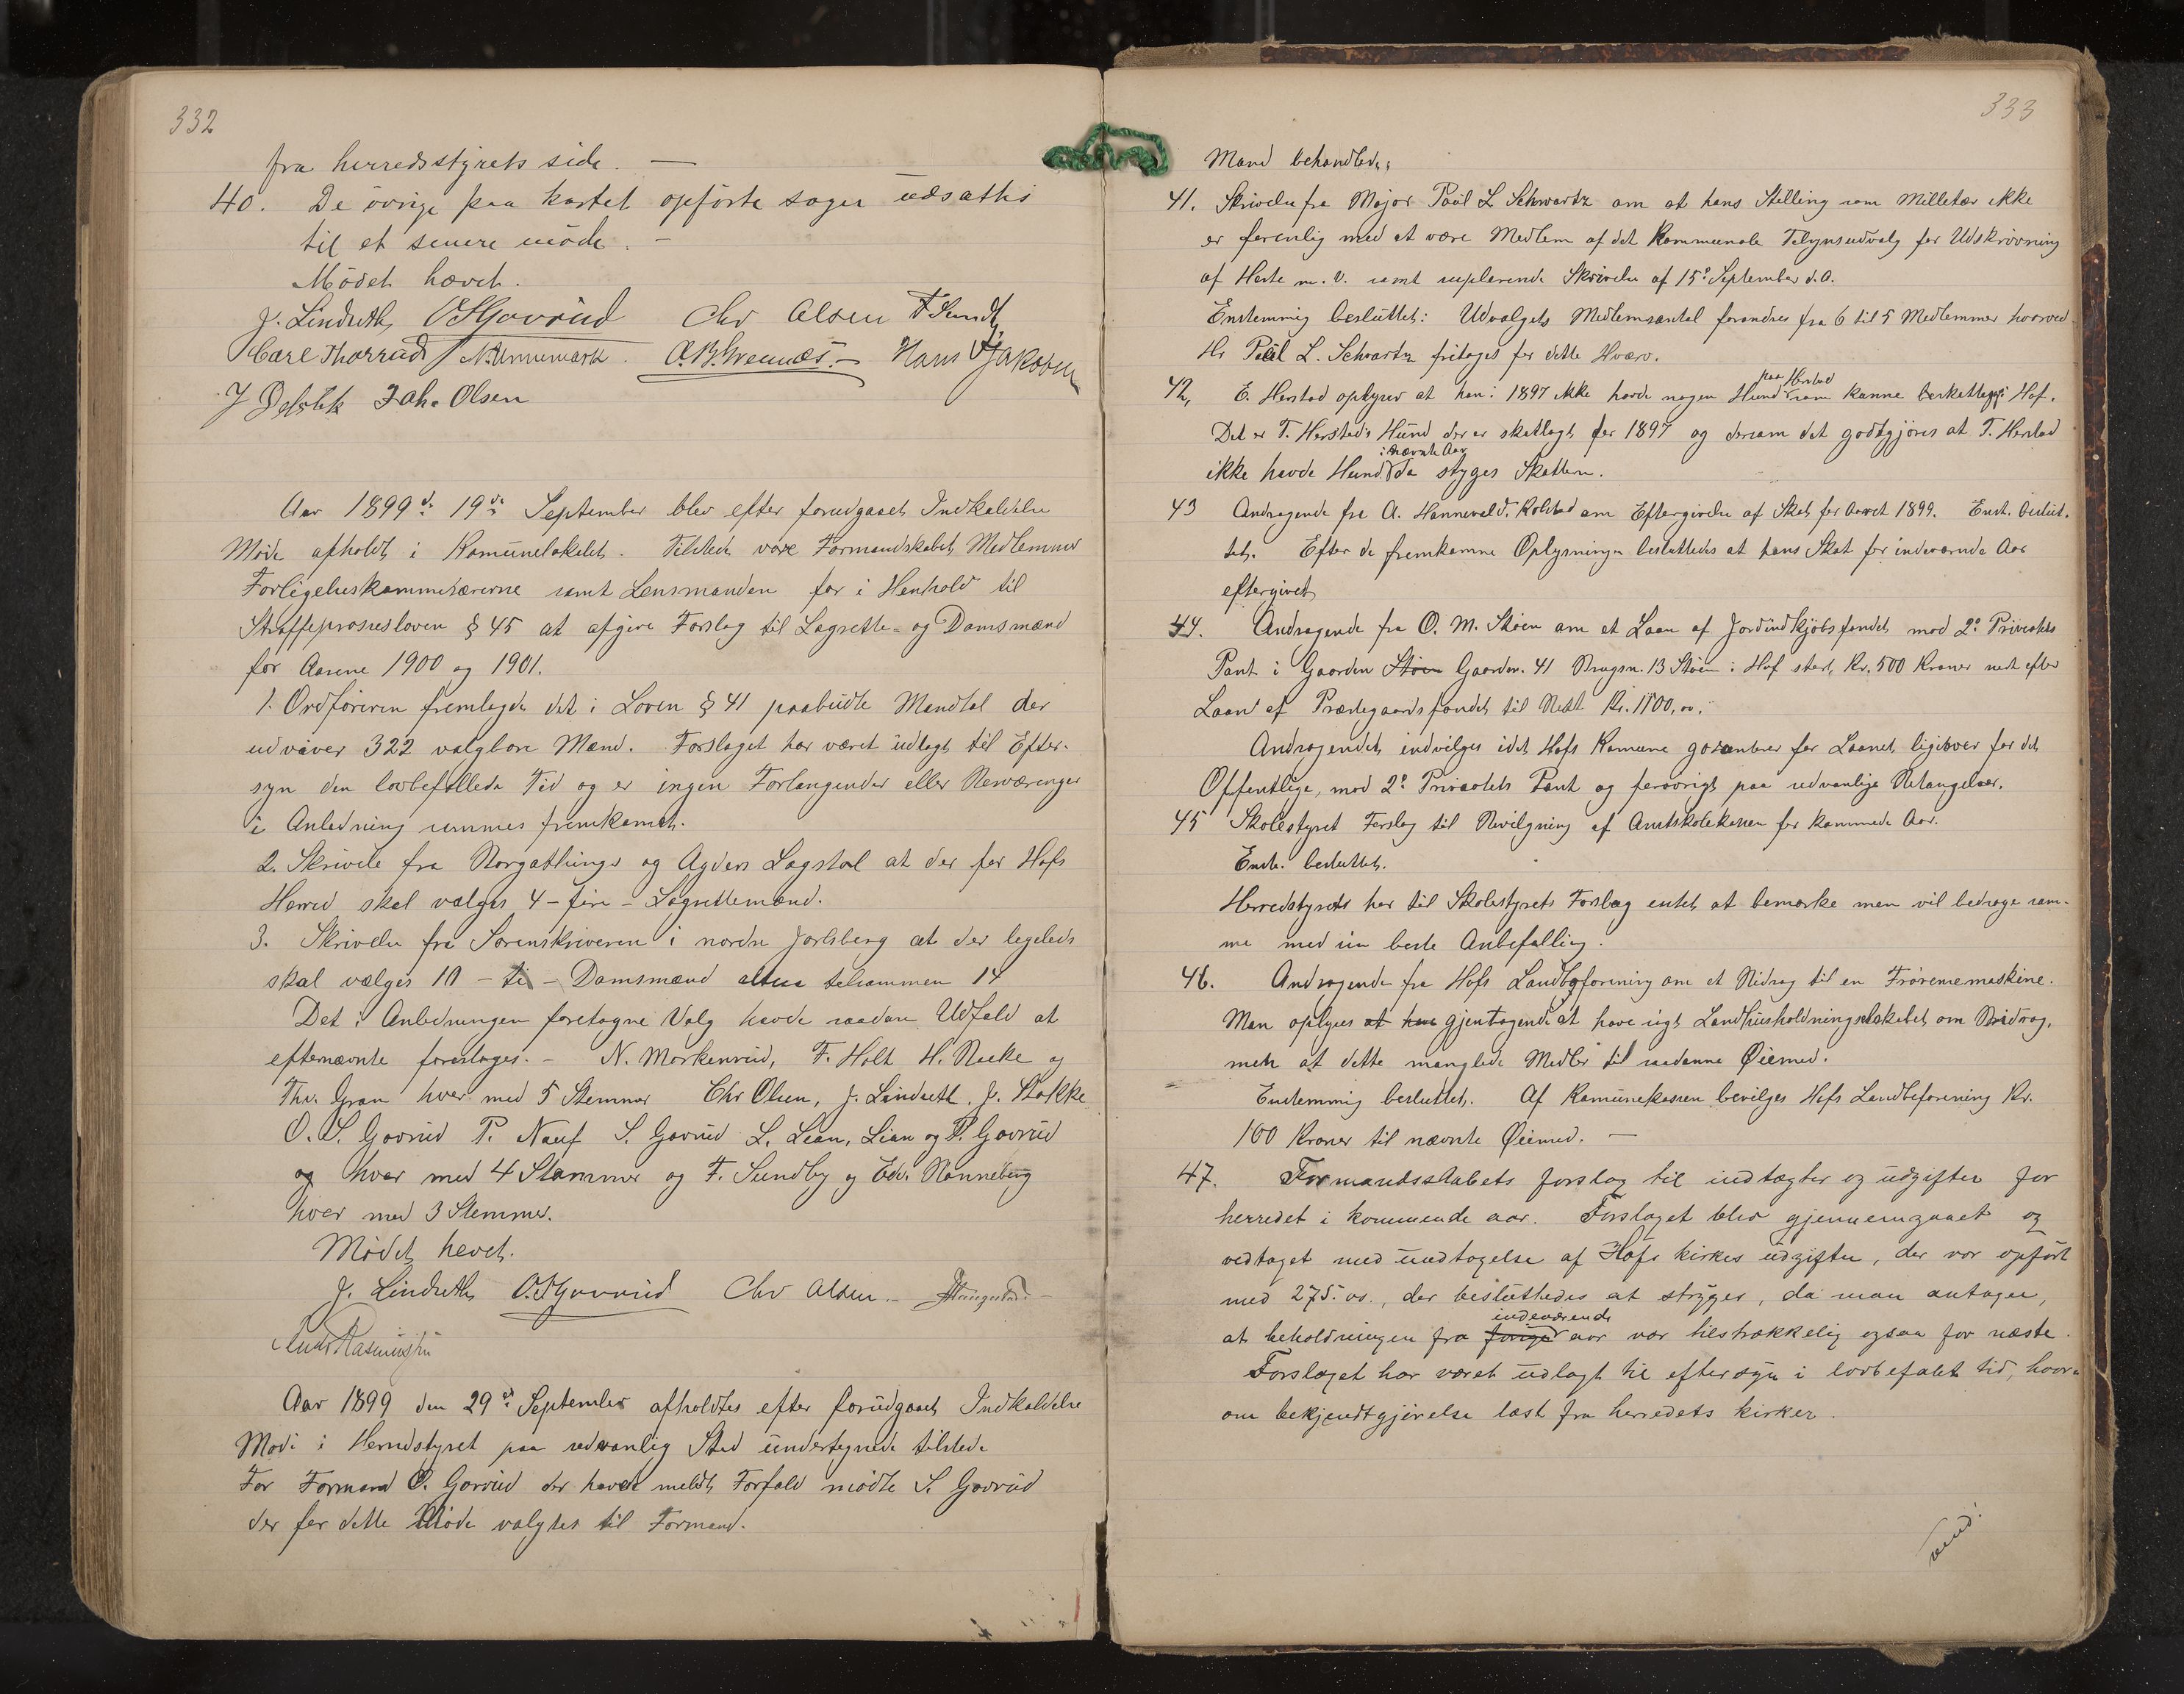 332
fra herredsstyrets side. —
40. De øvrige paa kartet opførte sager udsattes
til et senere møde. —
Mødet hævet.
J. Lindseth O S Govrud Chr Olsen F Sundby
Carl Thorrud N. Unnemark. A. B. Grennes. — Hans Jakobsen
Joh. Olsen
Aar 1899 d. 19de September blev efter forudgaaet Indkaldelse
Møde afholdt i Komunelokalet. Tilstede vare Formandskabets Medlemmer
Forligelseskommisærerne samt Lensmanden for i Henhold til
Straffeprosesloven § 45 at afgive Forslag til Lagrette- og Domsmænd
for Aarene 1900 og 1901.
1. Ordføreren fremlagde det i Loven § 41 paabudte Mandtal der
udviser 322 valgbare Mænd. Forslaget har været udlagt til Efter-
syn den lovbefallede Tid og er ingen Forlangender eller
i Anledning sammes fremkomet.
2. Skrivelse fra Borgathings og Agders Lagstol at der for Hofs
Herred skal vælges 4 - fire - Lagrettemænd.
3. Skrivelse fra Sorenskriveren i nordre Jarlsberg at der ligeleds
skal vælges 10 - ti - Domsmænd altsaa tilsammen 14
Det i Anledningen foretagne Valg havde saadan Udfald at
efternævnte foreslages. — N. Morkenrud, F. Holt H. Bakke og
Thv. Gran hver med 5 Stemmer Chr Olsen, J. Lindseth. J. Stokke
O. S. Govrud P. Nauf S. Govrud L. Lian, Lian og P. Govrud
og hver med 4 Stemmer og F. Sundby og Edv. Ronneberg
hver med 3 Stemmer.
Mødet hevet.
J. Lindseth O. S Govrud Chr Olsen. —
Rasmussen
Aar 1899 den 29de September afholdtes efter forudgaaet Indkaldelse
Møde i Herredstyret paa sedvanlig Sted undertegnede tilstede
For Formand O. Govrud der havde meldt Forfald mødte S. Govrud
der for dette Møde valgtes til Formand.
333
Mand behandlede:
41. Skrivelse fra Major Paul L Schwartz om at hans Stilling som Milletær ikke
er forenlig med at være Medlem af det kommunale Tilsynsudvalg for Udskrivning
af Heste m. v. samt suplerende Skrivelse af 15de September d. A.
Enstemmig besluttet: Udvalgets Medlemsantal forandres fra 6 til 5 Medlemmer hvorved
Hr Paul L. Schwartz fritages for dette Hværv.
42, E. Herstad oplyser at han i 1897 ikke havde nogen Hund paa Herstad som kunne beskattes i Hof.
Det er T. Herstads Hund der er skatlagt for 1897 og dersom det godtgjøres at T. Herstad
ikke havde Hund i nævnte Aar da styges Skatten.
43 Andragende fra A. Hannevold. Kolstad om Eftergivelse af Skat for Aaret 1899. Enst. beslut.
tet. Efter de fremkomne Oplysninger besluttedes at hans Skat for indeværende Aar
eftergivet
44. Andragende fra O. M. Støen om et Laan af Jordindkjøbsfondet mod 2den Prioritets
Pant i Gaarden Støen Gaardsn. 41 Brugsn. 13 Støen i Hof stort, Kr. 500 Kroner næst efter
Laan af Præstegaardsfondet til Rest Kr. 1100,00.
Andragendet indvilges idet Hofs Komune garanterer for Laanet ligeover for det
Offentlige, mod 2den Prioritets Pant og forøvrigt paa sedvanlige Betingelser.
45 Skolestyret Forslag til Bevilgning af Amtskolekassen for kommende Aar.
Enst. besluttet.
Herredstyret har til Skolestyrets Forslag intet at bemærke men vil bedrage sam-
me med sin beste Anbefalling.
46. Andragende fra Hofs Landboforening om et Bidrag til en Frørensemaskine.
Man oplyses at have gjentagende at have søgt Landhusholdningselskabet om Bidrag,
men at dette manglede Midler til saadanne Øiemed.
Enstemmig besluttet. Af Komunekassen bevilges Hofs Landboforening Kr.
100 Kroner til nævnte Øiemed. —
47. Formandsskabets forslag til indtægter og udgifter for
herredet i kommende aar. Forslaget blev gjennemgaaet og
vedtaget med undtagelse af Hofs kirkes udgifter, der var opført
med 275.00., der besluttedes at stryges, da man antager,
at beholdningen fra forrige indeværende aar var tilstrækkelig ogsaa for næste.
Forslaget har været udlagt til eftersyn i lovbefalet tid, hvor-
om bekjendtgjørelse læst fra herredets kirker.
vend.